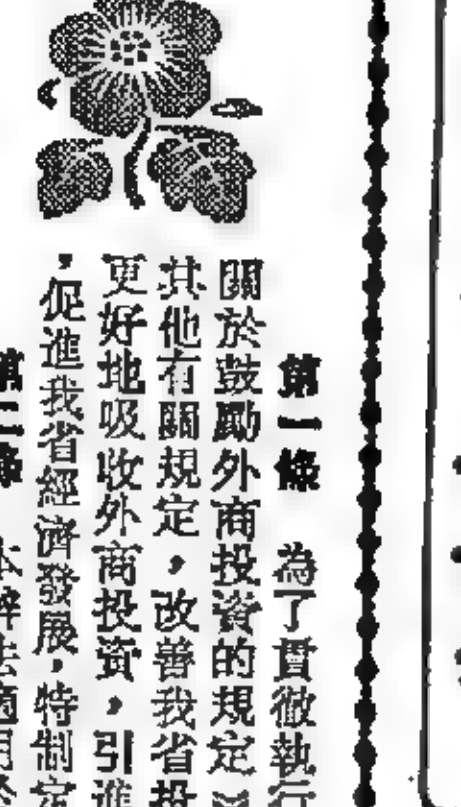 第一條　為了貫徹執行
關於鼓勵外商投資的規定
其他有關規定，改善我省投
更好地吸收外商投資，引進
，促進我省經濟發展，特制定
第二條　本辦法適用於